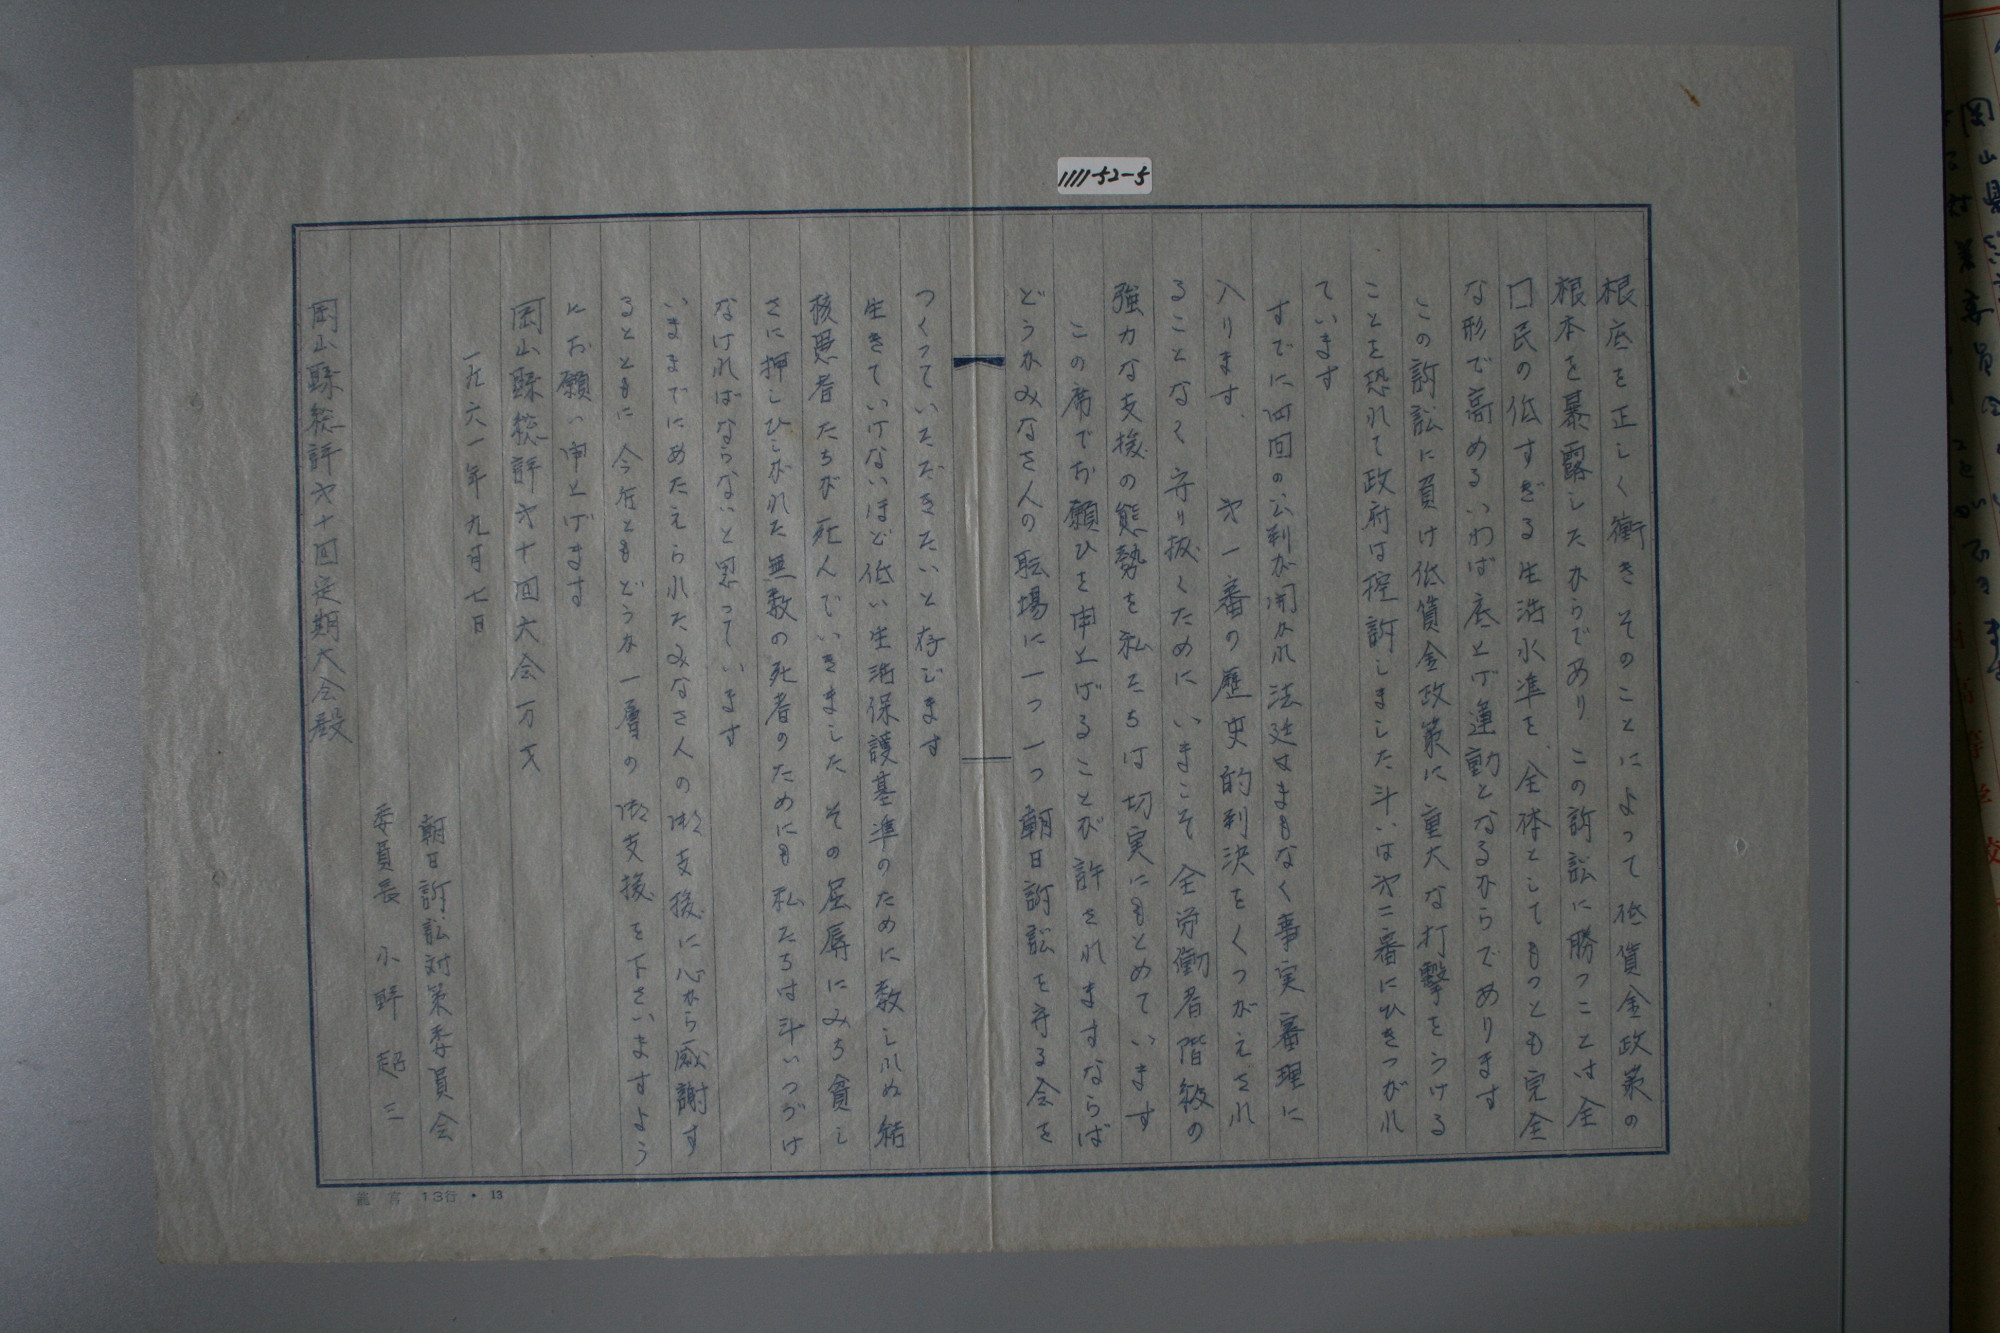 1111-52-5
根底を正しく衝きそのことによって低賃金政策の
根本を暴露したからであり この訴訟に勝つことは全
口民の低すぎる生活水準を、全体としてもっとも完全
な形で高めるいわば底上げ運動となるからであります
この訴訟に負け低賃金政策に重大な打撃をうける
ことを恐れて政府は控訴しました斗いは才二審にひきつがれ
ています
すでに四回の公判が開かれ法廷はまもなく事実審理に
入ります、才一審の歴史的判決をくつがえされ
ることなく守り抜くために いまこそ 全労働者階級の
強力な支援の態勢を私たちは切実にもとめています
この席でお願ひを申上げることが許されますならば
どうかみなさ人の職場に一つ一つ 朝日訴訟を守る会を
つくっていただきたいと存じます
生きていけないほど低い生活保護基準のために数しれぬ結
核患者たちが死んでいきました その屈辱にみち貧し
さに押しひしがれた無数の死者のためにも 私たちは斗いつづけ
なければならないと思っています
いままでにあたえられたみなさ人の御支援に心から感謝す
るとともに 今后ともどうか一層の御支援を下さいますよう
にお願い申上げます
岡山縣総評才十回大会万才
一九六一年九月七日
朝日訴訟対策委員会
委員長 小野 超三
岡山縣総評才十回定期大会殿
13行・13